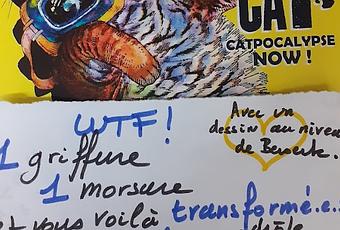 CAT
CATPOCALYPSE
NOW !
WTF!
Avec un
dessin au niveau
de Berserk.
1 griffure
1 morsure
et vous voilà transformé.e.s
drôle